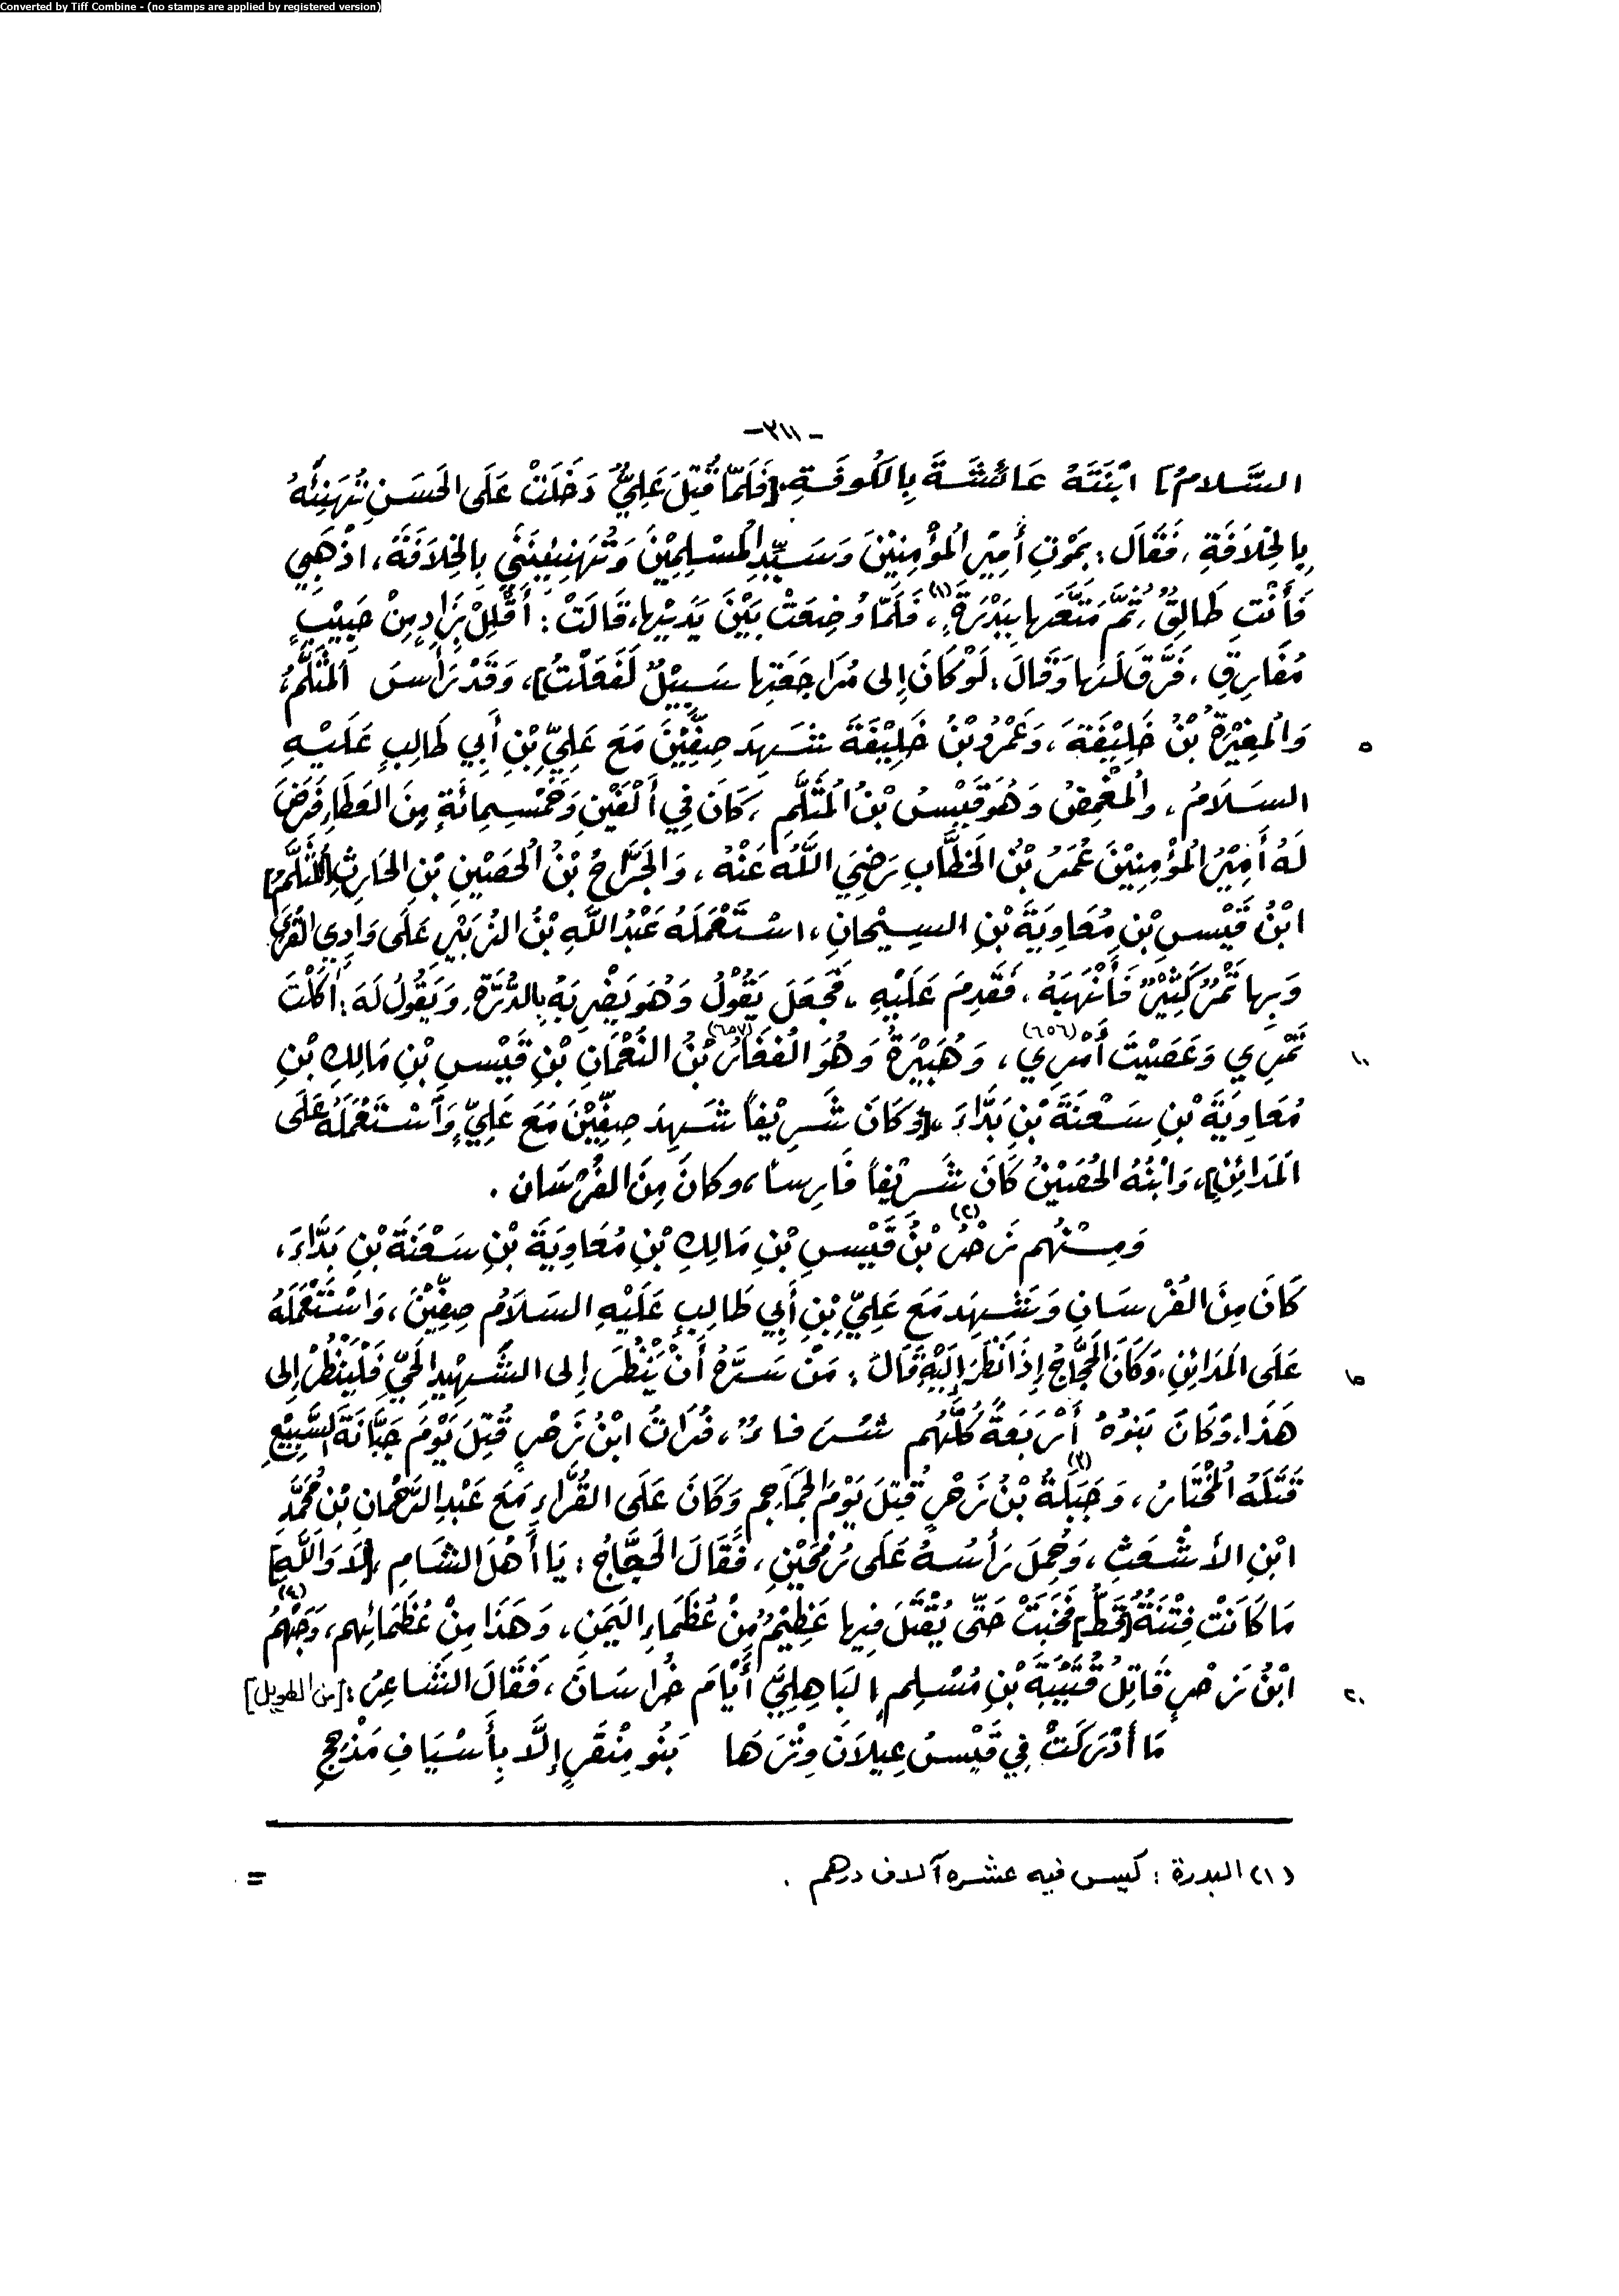 Converted by Tiff Combine - (no stamps are applied by registered version)
-٣١١-
السَّلامُ] ابْنَتَهُ عَائشَةَ بِالكُوفَةِ.[فَلَمّا قُتِلَ عَلِيٌّ دَخَلَتْ عَلَى الحَسَنِ تُهَنِئُهُ
بِالخِلَافَةِ، فَقَال: بِمَوْتِ أَمِيْرِ المُؤْمِنِيْنَ وَسَيِّدِ المُسْلِمِيْنَ وَتُهَنِئِينَنِي بِالخِلَافَةَ، اذْهَبِي
فَأَنْتِ طَالِقٌ، ثُمَّ مَتَّعَها بِبَدْرَةٍ(١)، فَلَمّا وُضِعَتْ بَيْنَ يَدَيْها، قَالَتْ: أَقْلِلْ بِزَادٍ مِنْ حَبِيْبٍ
مُفَارِقٍ، فَرَّقَ لَهَا وَقَالَ: لَوْ كَانَ إلى مُرَاجَعَتِها سَبِيْلٌ لَفَعَلْتُ]، وَقَدْ رَأسَ المُثَلَّمُ،
وَالمُغِيْرَةُ بْنُ خَلِيْفَةَ، وَعَمْرُو بْنُ خَلِيْفَةَ شَهِدَ صِفِّيْنَ مَعَ عَلِيِّ بْنِ أَبِي طَالِبٍ عَلَيْهِ
٥
السَلَامُ، والمُغْمِضُ وَهُوَ قَيْسُ بْنُ المُثَلَّمِ، كَانَ فِي أَلْفَيْنِ وَخَمْسِمِائَةٍ مِنَ العَطَاءِ فَرَضَ
لَهُ أَمِيْرُ المُؤْمِنِيْنَ عُمَرُ بْنُ الخَطَّابِ رَضِيَ اللَّهُ عَنْهُ، وَالجَرَّاحُ بْنُ الحُصَيْنِ بْنِ الحَارِثِ[المُثَلَّمُ]
ابْنُ قَيْسِ بْنِ مُعَاوِيَةَ بْنِ السِيْحانِ، اسْتَعْمَلَهُ عَبْدُ اللَّهِ بْنُ الزُبَيْرِ عَلَى وَادِي القُرَى
وَبِها تَمْرٌ كَثِيْرٌ فَأَنْهَبَهُ، فَقَدِمَ عَلَيْهِ، فَجَعَلَ يَقُوْلُ وَهُوَ يَضْرِبَهُ بِالدُّرَّةِ، وَيَقُولُ لَهُ: أَكَلْتَ
تَمْرِي وَعَصَيْتَ أَمْرِي(٦٥٦)، وَهُبَيْرَةُ وَهُوَ الغُفَارُ(٦٥٧) بْنُ النُعْمَانِ بْنِ قَيْسِ بْنِ مَالِكِ بْنِ
١٠
مُعَاوِيَةَ بْنِ سَعْنَةَ بْنِ بَدَّاءَ،[وَكَانَ شَرِيْفاً شَهِدَ صِفِّيْنَ مَعَ عَلِيٍّ، وَاسْتَعْمَلَهُ عَلَى
المَدَائِنِ]، وَابْنُهُ الحُصَيْنُ كَانَ شَرِيْفاً فَارِساً، وكانَ مِنَ الفُرْسَان.
وَمِنْهُم زَحْرُ(٢) بْنُ قَيْسِ بْنِ مَالِكِ بْنِ مُعَاوِيَةَ بْنِ سَعْنَةَ بْنِ بَدَّاءَ،
كَانَ مِنَ الفُرْسَانِ وَشَهِدَ مَعَ عَلِيِّ بْنِ أَبِي طَالِبٍ عَلَيْهِ السَلَامُ صِفِّيْنَ، وَاسْتَعْمَلَهُ
عَلَى المَدَائِنِ، وَكَانَ الحَجَّاجُ إِذَا نَظَرَ إلَيْهِ قَالَ: مَنْ سَرَّهُ أَنْ يَنْظُرَ إلى الشَهِيْدِ الحَيِّ فَلْيَنْظُرْ إلى
١٥
هَذَا، وَكَانَ بَنُوْهُ أَرْبَعَةً كُلُّهُم شُرَفاءُ، فُرَاتُ ابْنُ زَحْرٍ قُتِلَ يَوْمَ جَبَّانَةَ السَّبِيْعِ
قَتَلَهُ المُخْتَارُ، وَجَبَلَةُ(٣) بْنُ زَحْرٍ قُتِلَ يَوْمَ الجَمَاجِم وَكَانَ عَلَى القُرَّاءِ مَعَ عَبْدِ الرَّحْمانِ بْنِ مُحَمَّدِ
ابْنِ الأَشْعَثِ، وَحُمِلَ رَأسُهُ عَلَى رُمْحَيْنِ، فَقَالَ الحَجَّاجُ: يَا أَهْلَ الشَامِ،[لَا وَاللَّهِ]
مَا كَانَتْ فِتْنَةٌ[قَطُّ]فَخَبَتْ حَتّى يُقْتَلَ فِيها عَظِيْمٌ مِنْ عُظَمَاءِ اليَمَنِ، وَهَذَا مِنْ عُظَمَائِهم، وَجَهْمُ(٤)
ابْنُ زَحْرٍ قَاتِلُ قُتَيْبَةَ بْنِ مُسْلِمٍ البَاهِلِيِّ أَيَّامَ خُرَاسَانَ، فَقَالَ الشَاعِرُ: [من الطويل]
٢٠
مَا أَدْرَكَتْ فِي قَيْسُ عِيلَانَ وِتْرَهَا بَنُو مِنْقَرٍ إلَّا بِأَسْيَافِ مَذْحِجِ
(١) البدرة: كيس فيه عشره آلاف درهم.
=